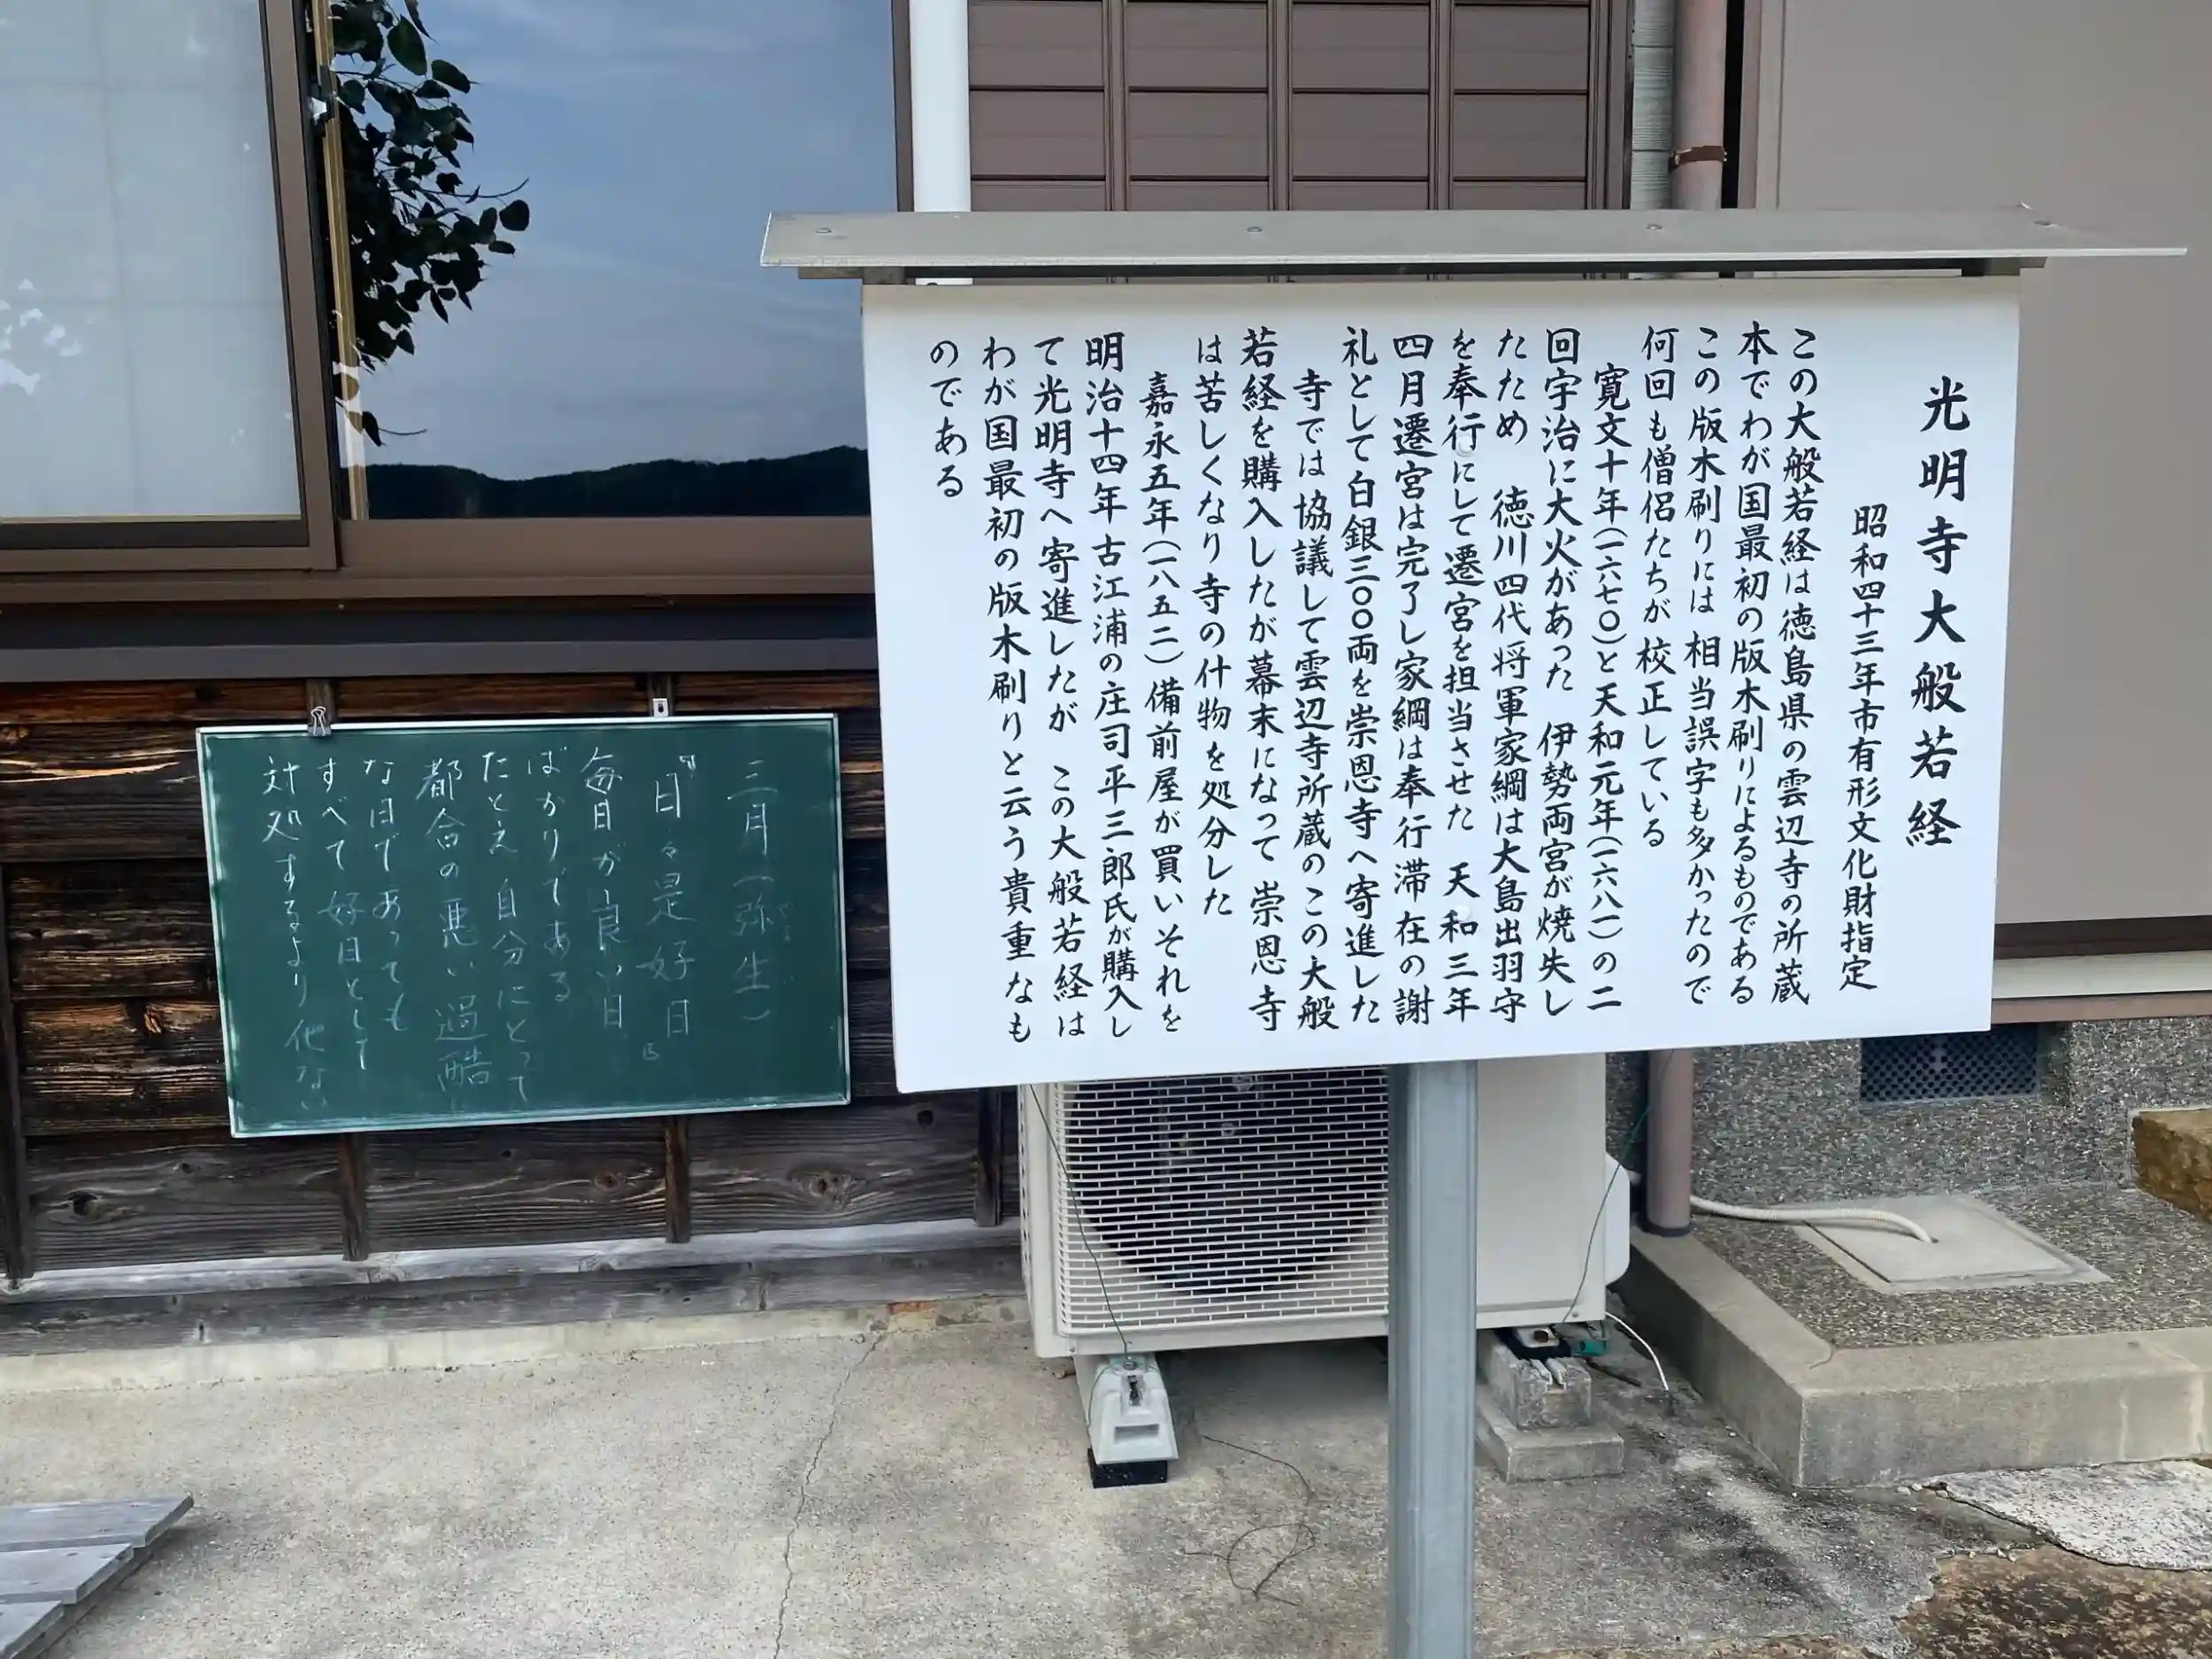 光明寺大般若経
昭和四十三年市有形文化財指定
この大般若経は徳島県の雲辺寺の所蔵
本でわが国最初の版木刷りによるものである
この版木刷りには 相当誤字も多かったので
何回も僧侶たちが校正している
寛文十年(一六七〇)と天和元年(一六八一)の二
回宇治に大火があった 伊勢両宮が焼失し
たため 徳川四代将軍家綱は大島出羽守
を奉行にして遷宮を担当させた 天和三年
四月遷宮は完了し家綱は奉行滞在の謝
礼として白銀三〇〇両を崇恩寺へ寄進した
寺では協議して雲辺寺所蔵のこの大般
若経を購入したが幕末になって 崇恩寺
は苦しくなり寺の什物を処分した
嘉永五年(一八五二)備前屋が買いそれを
明治十四年古江浦の庄司平三郎氏が購入し
て光明寺へ寄進したが この大般若経は
わが国最初の版木刷りと云う貴重なも
のである
三月(弥生)
『日々是好日』
毎日が良い日
ばかりである
たとえ 自分にとって
都合の悪い過酷
な日であっても
すべて好日として
対処するより 化ない